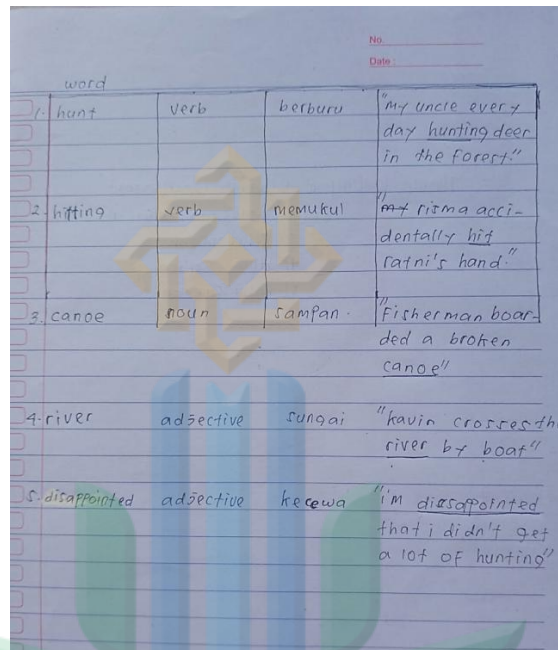 No.
Date :
word
1. hunt verb berburu "my uncle every
day hunting deer
in the forest."
2. hitting verb memukul "my risma acci-
dentally hit
ratni's hand."
3. canoe noun sampan. "Fisherman boar-
ded a broken
canoe"
4. river adjective sungai "kavin crosses th
river by boat"
5. disappointed adjective kecewa "i'm dissapointed
that i didn't get
a lot of hunting"